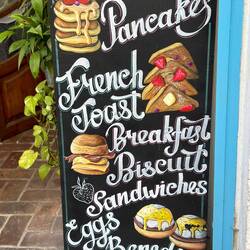 Pancakes
French
Toast
Breakfast
Biscuit
Sandwiches
Eggs
Bened